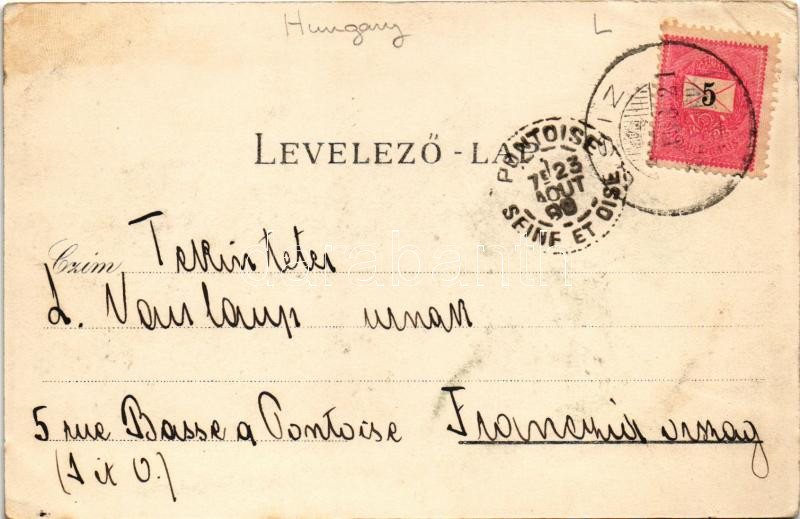 Hungary L
5
LEVELEZŐ-LAP
PONTOISE
7E 23
AOUT
99
SEINE ET OISE
Czím Tekintetes
L. Vauloup urnak
5 rue Basse a Pontoise Francziaország
(S et O.)